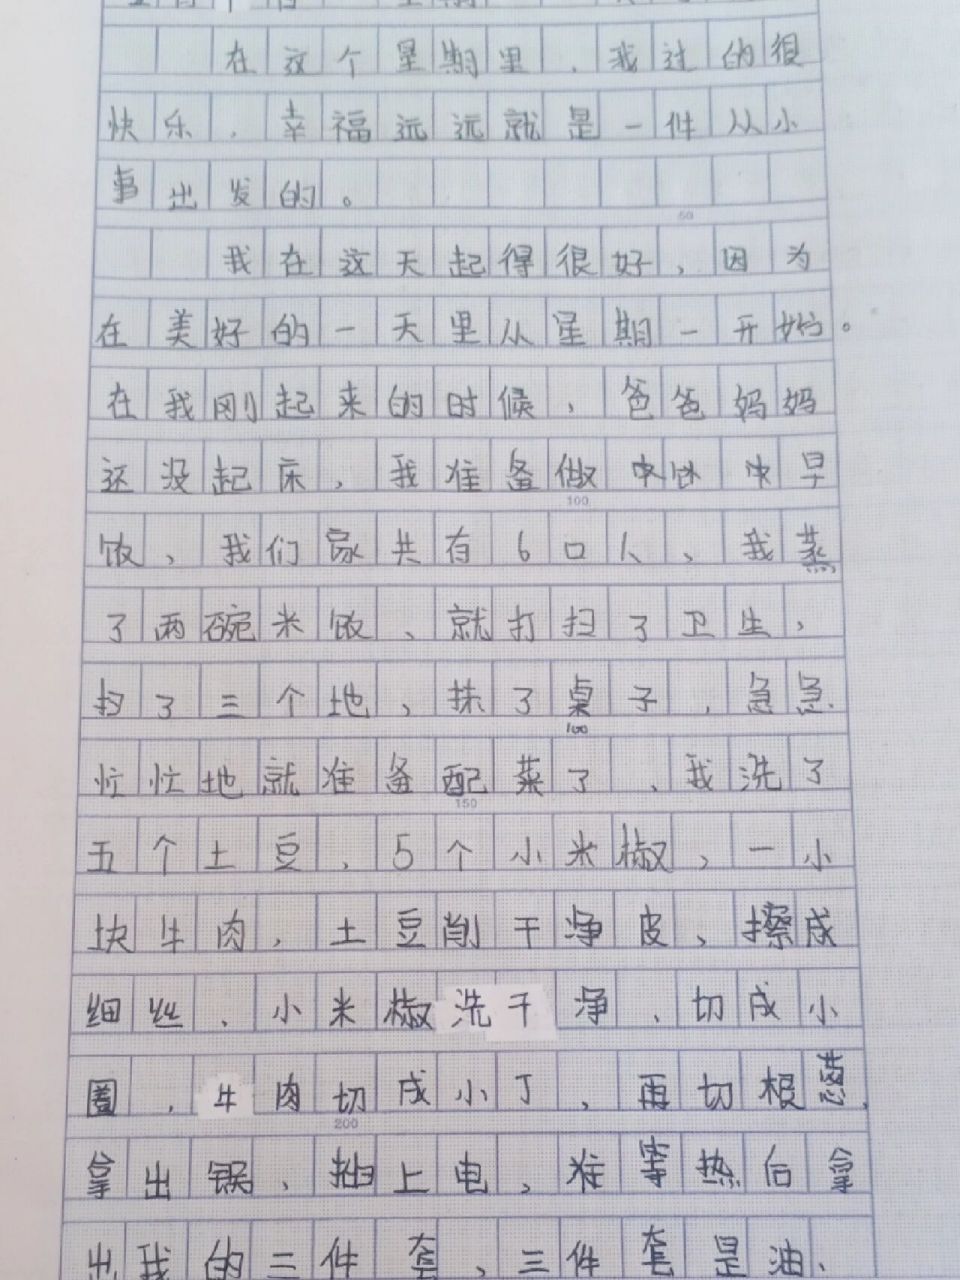 在这个星期里，我过的很
快乐，幸福远远就是一件从小
事出发的。
60
我在这天起得很好，因为
在美好的一天里从星期一开始。
在我刚起来的时候，爸爸妈妈
还没起床，我准备做 早
100
饭，我们家共有6口人，我蒸
了两碗米饭、就打扫了卫生，
扫了三个地，抹了桌子，急急
100
忙忙地就准备配菜了、我洗了
150
五个土豆，5个小米椒，一小
块牛肉，土豆削干净皮、擦成
细丝、小米椒洗干净、切成小
圈，牛肉切成小丁，再切根葱，
200
拿出锅、插上电，准等热后拿
出我的三件套，三件套是油、